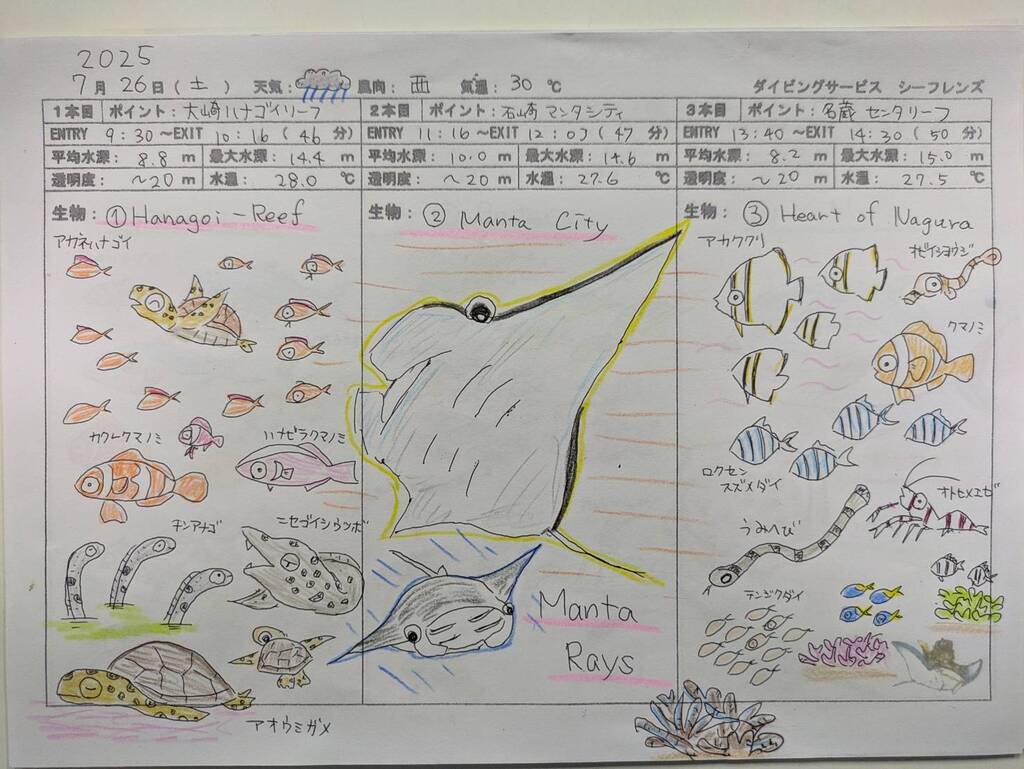 2025
7月 26日(土) 天気: 風向: 西 気温: 30 ℃ ダイビングサービス シーフレンズ
1本目 ポイント: 大崎ハナゴイリーフ
ENTRY 9:30 ~EXIT 10:16 ( 46 分)
平均水深: 8.8 m 最大水深: 14.4 m
透明度: ~20 m 水温: 28.0 ℃
生物: ① Hanagoi-Reef
アカネハナゴイ
カクレクマノミ
ハナビラクマノミ
チンアナゴ
ニセゴイシウツボ
アオウミガメ
2本目 ポイント: 石崎 マンタシティ
ENTRY 11:16 ~EXIT 12:03 (47 分)
平均水深: 10.0 m 最大水深: 14.6 m
透明度: ~20 m 水温: 27.6 ℃
生物: ② Manta City
Manta
Rays
3本目 ポイント: 名蔵 センタリーフ
ENTRY 13:40 ~EXIT 14:30 ( 50 分)
平均水深: 8.2 m 最大水深: 15.0 m
透明度: ~20 m 水温: 27.5 ℃
生物: ③ Heart of Nagura
アカククリ
オビイシヨウジ
クマノミ
ロクセン
スズメダイ
オトヒメエビ
うみへび
テンジクダイ